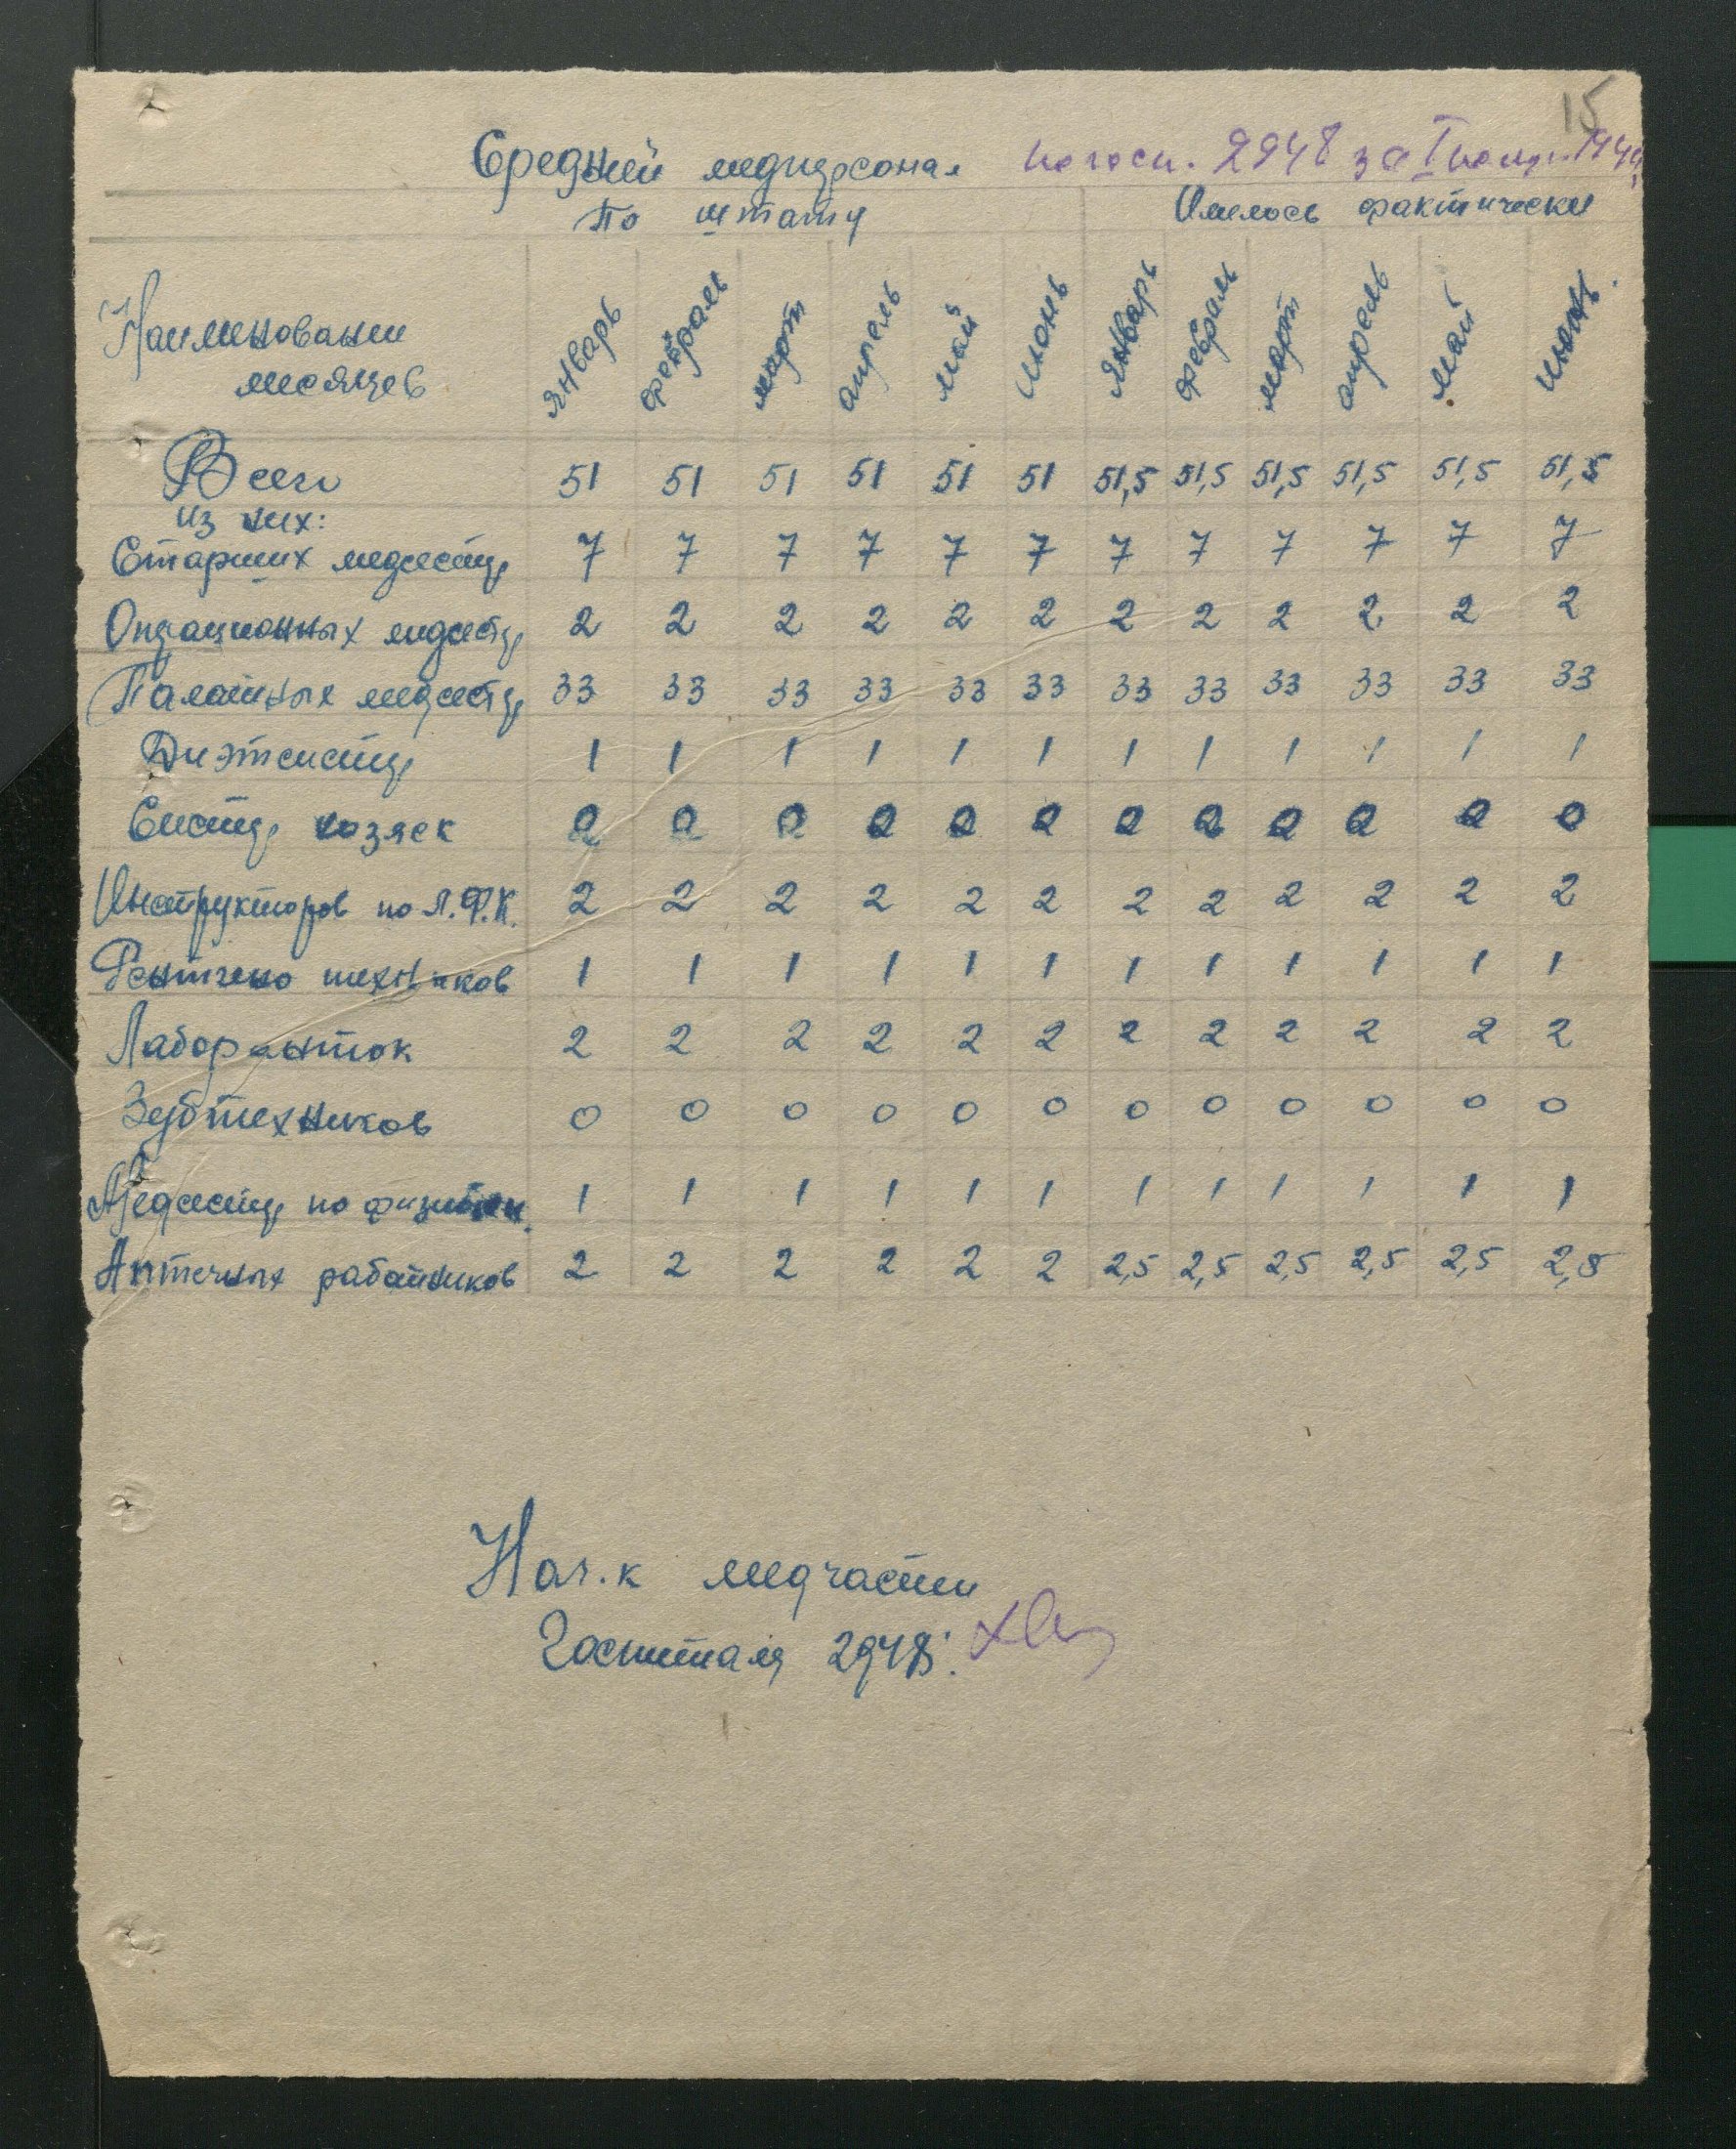 15
Средний медперсонал по госп. 2948 за I полуг. 1944
По штату Имелось фактически
Наименование месяцев январь февраль март апрель май июнь январь февраль март апрель май июнь
Всего 51 51 51 51 51 51 51,5 51,5 51,5 51,5 51,5 51,5
из них:
Старших медсестер 7 7 7 7 7 7 7 7 7 7 7 7
Операционных медсестер 2 2 2 2 2 2 2 2 2 2 2 2
Палатных медсестер 33 33 33 33 33 33 33 33 33 33 33 33
Диэтсестер 1 1 1 1 1 1 1 1 1 1 1 1
Сестер хозяек
Инструкторов по Л.Ф.К. 2 2 2 2 2 2 2 2 2 2 2 2
Рентгено техников 1 1 1 1 1 1 1 1 1 1 1 1
Лаборанток 2 2 2 2 2 2 2 2 2 2 2 2
Зубтехников 0 0 0 0 0 0 0 0 0 0 0 0
Медсестер по 1 1 1 1 1 1 1 1 1 1 1 1
Аптечных работников 2 2 2 2 2 2 2,5 2,5 2,5 2,5 2,5 2,5
Нач.к медчасти
Госпиталя 2948: